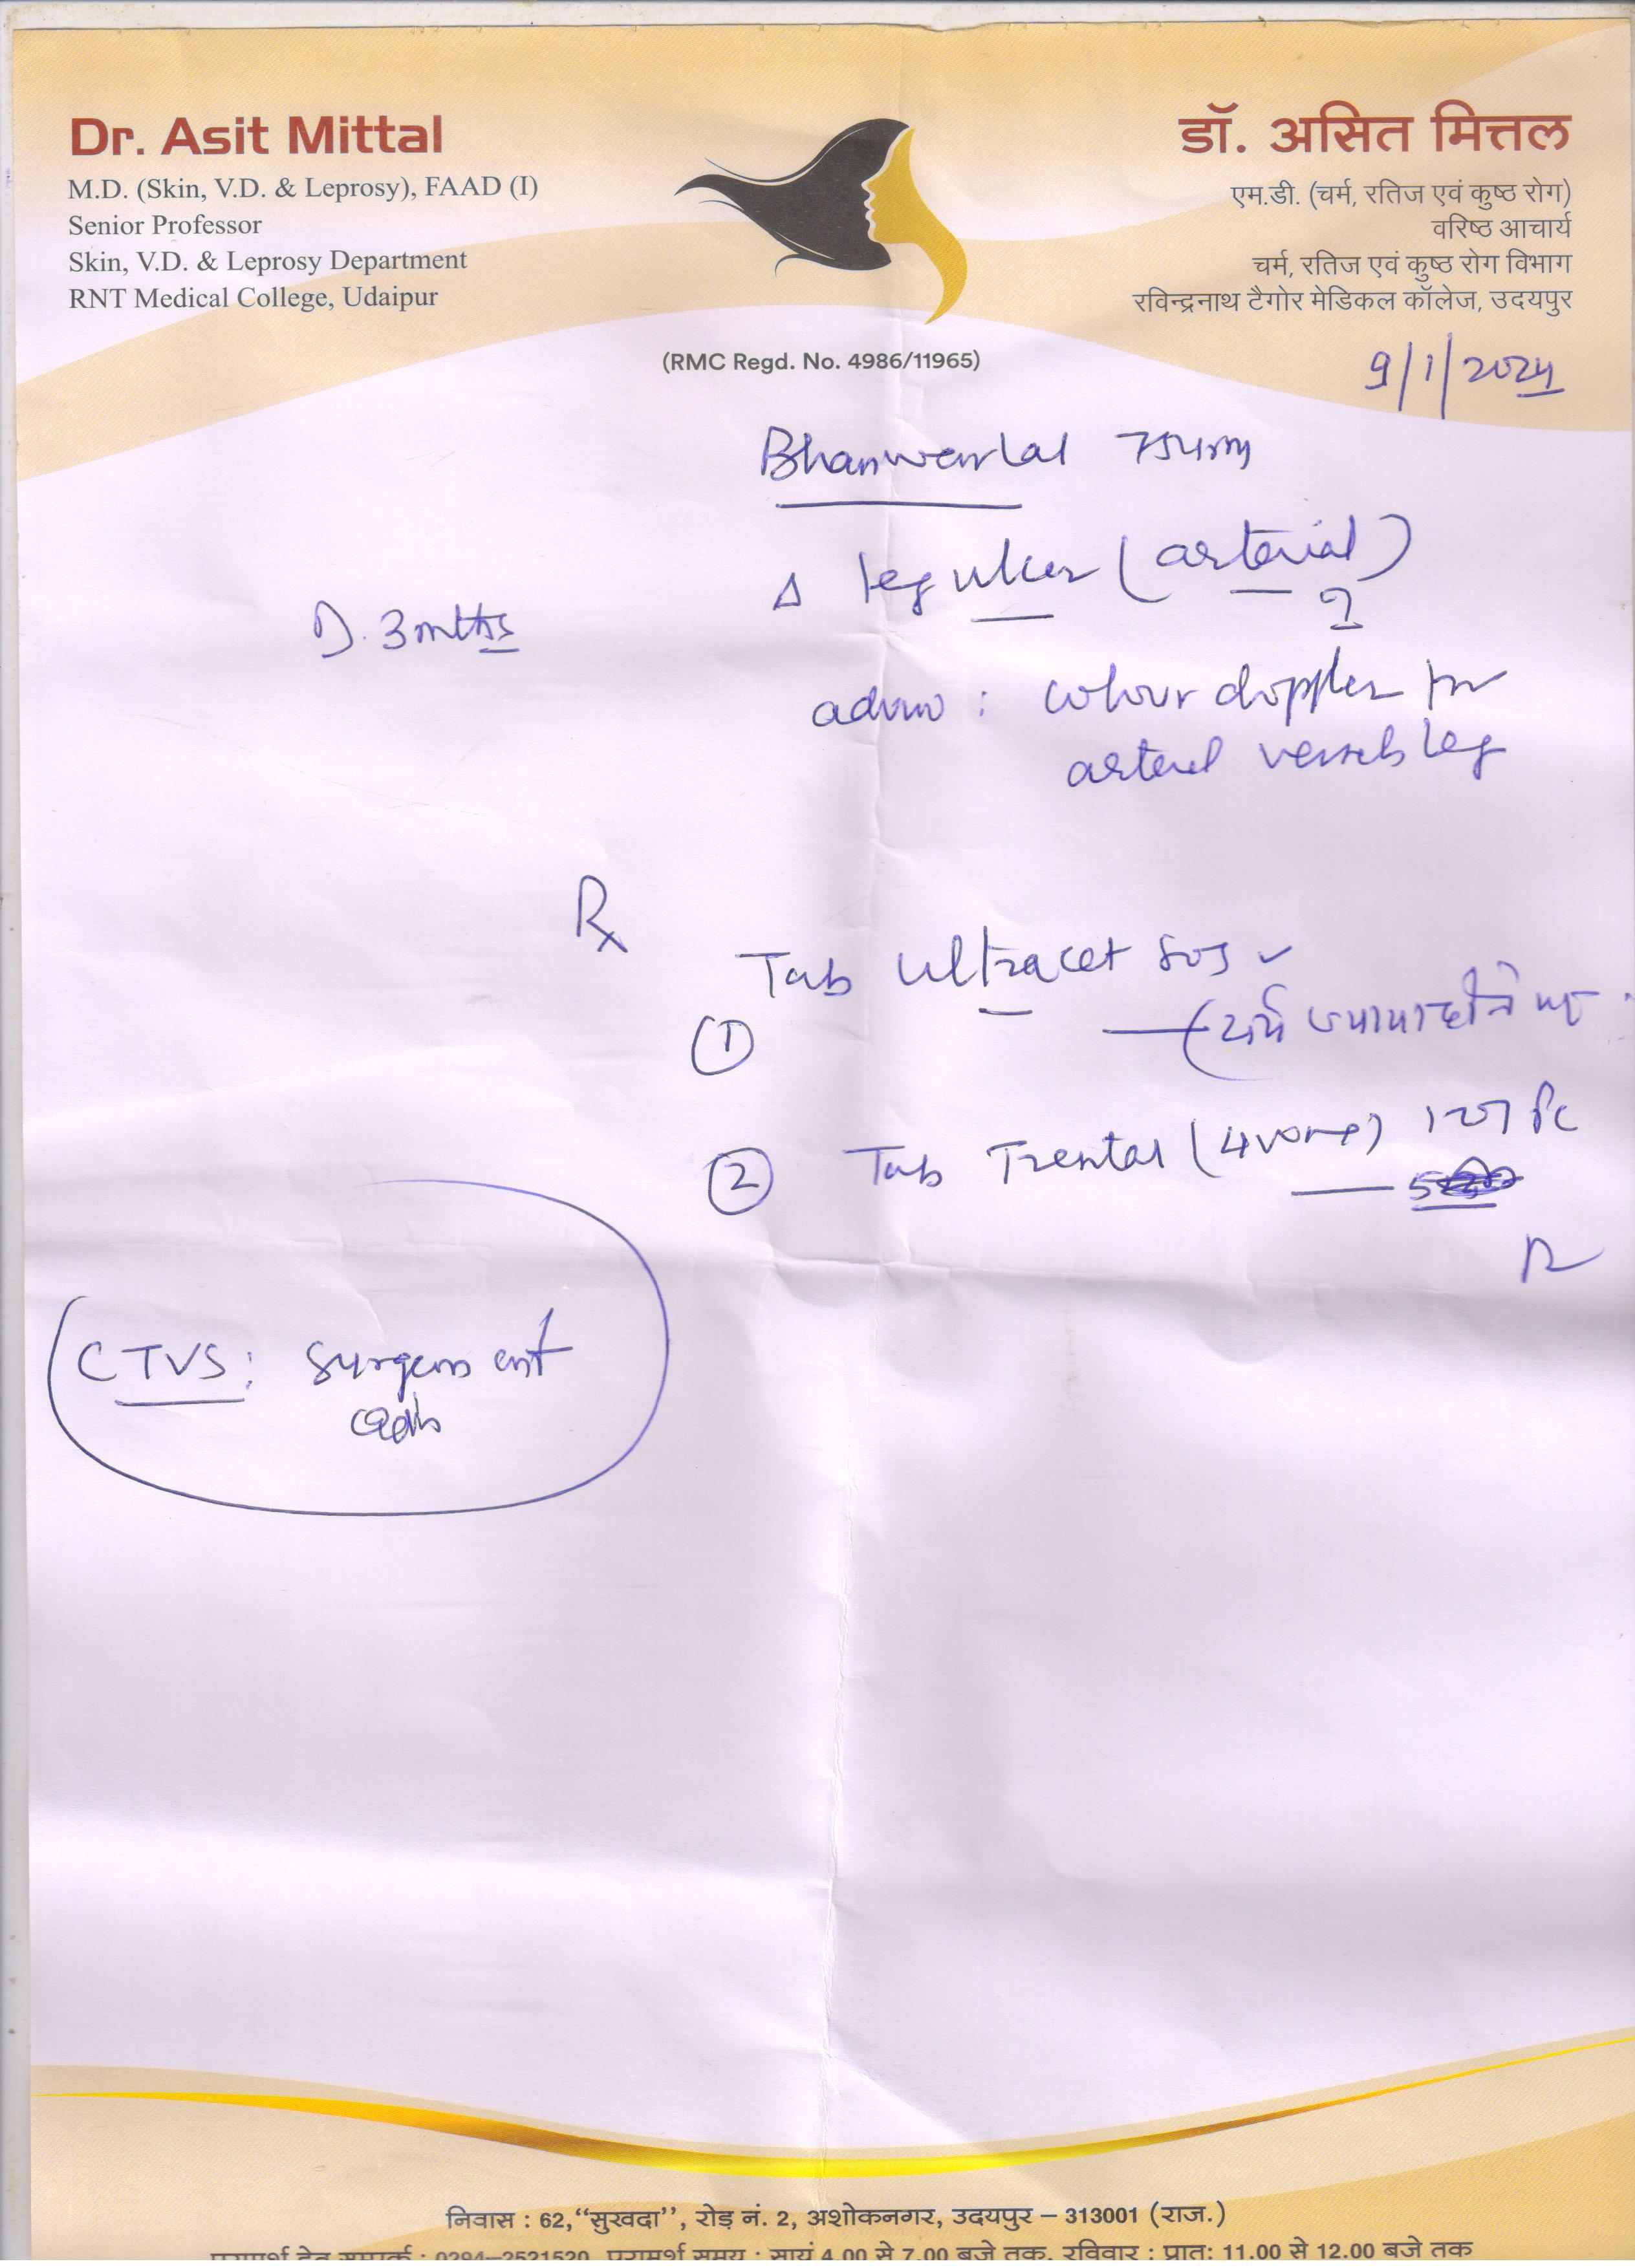 Dr. Asit Mittal
M.D. (Skin, V.D. & Leprosy), FAAD (I)
Senior Professor
Skin, V.D. & Leprosy Department
RNT Medical College, Udaipur
डॉ. असित मित्तल
एम.डी. (चर्म, रतिज एवं कुष्ठ रोग)
वरिष्ठ आचार्य
चर्म, रतिज एवं कुष्ठ रोग विभाग
रविन्द्रनाथ टैगोर मेडिकल कॉलेज, उदयपुर
(RMC Regd. No. 4986/11965)
9/1/2024
Bhanwarlal
Δ leg ulcer (arterial)
?
D. 3 mths
colour doppler for
arterial vessels leg
Rx
Tab Ultracet SOS
①
② Tab Trental (400mg)
CTVS: surgeon
निवास : 62,‘‘सुखदा’’, रोड़ नं. 2, अशोकनगर, उदयपुर – 313001 (राज.)
परामर्श हेतु सम्पर्क : 0294–2521520, परामर्श समय : सायं 4.00 से 7.00 बजे तक, रविवार : प्रातः 11.00 से 12.00 बजे तक